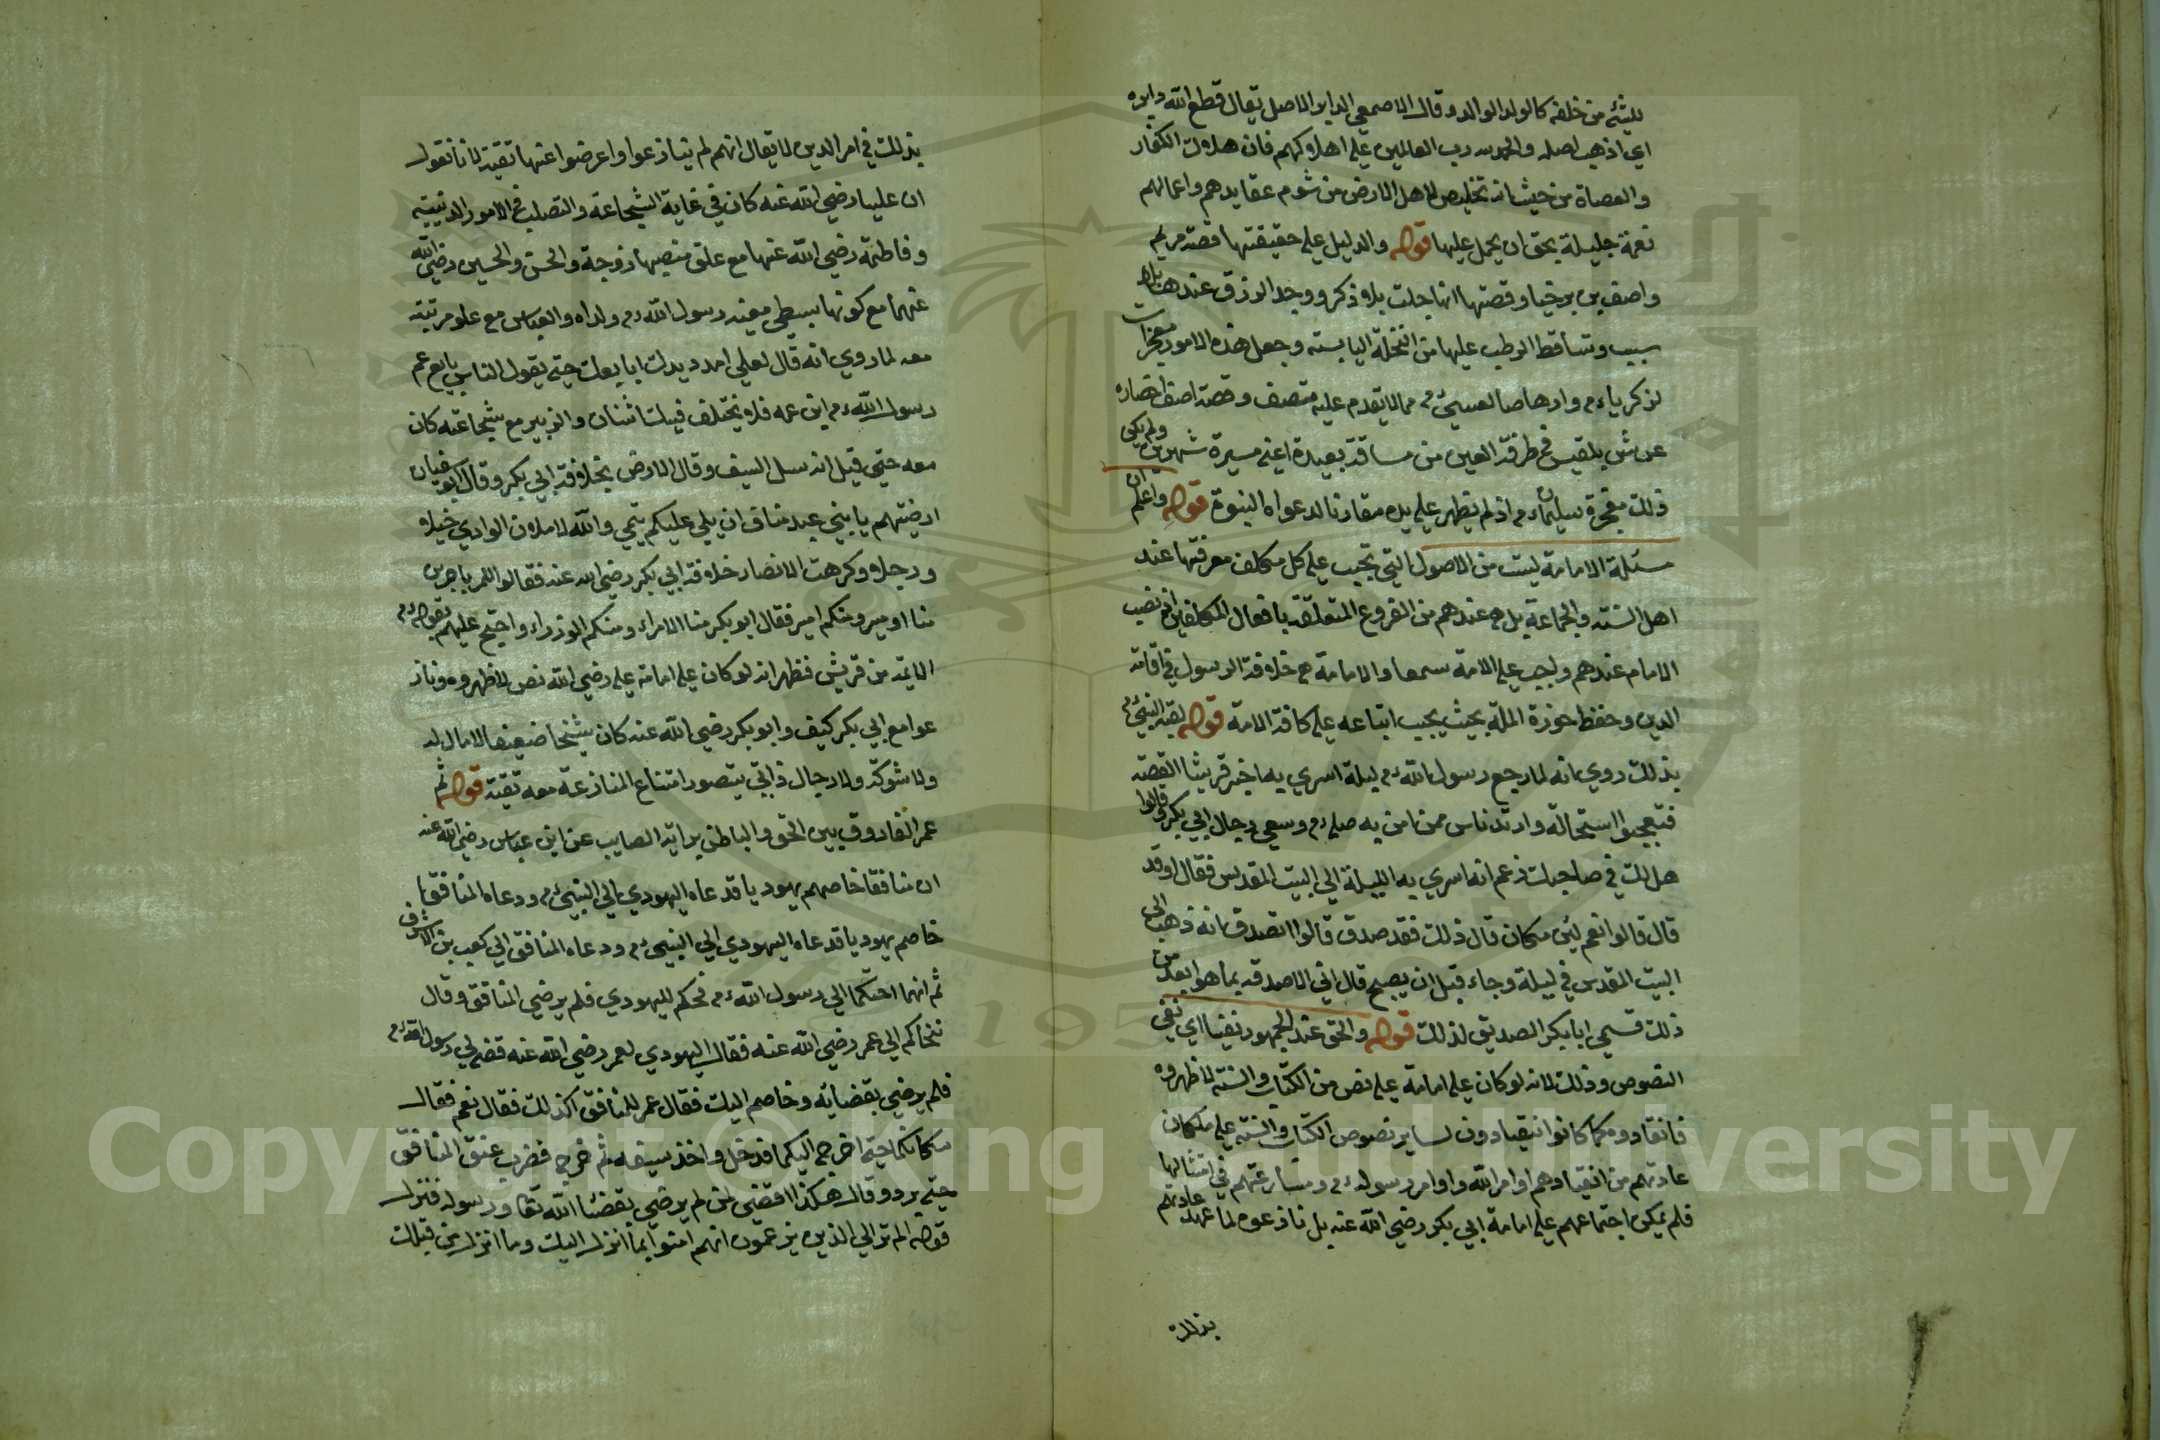 للشئ من خلفه كالولد الوالد وقال الاصمعي الدابر الاصل يقال قطع الله دابره
اي اذهب اصله والحمد لله رب العالمين علي اهلاكهم فان هلاك الكفار
والعصاة من حيث انه تخليص لاهل الارض من شوم عقايدهم واعمالهم
نعمة جليلة يحق ان يحمل عليها قوله والدليل علي حقيقتها قصة مريم
واصف بن برخيا وقصتها انها حلت بلا ذكر ووجد الرزق عندها بلا
سبب وتساقط الرطب عليها من النخلة اليابسة وجعل هذه الامور معجزات
لزكرياء م وارهاصا لعيسيء م مما لا يقدم عليه منصف وقصة اصف احضاره
عرش بلقيس في طرفة العين من مسافة بعيدة اعني مسيرة شهرين ولم يكن
ذلك معجزة سليمانء م اذ لم يظهر علي يده مقارنا لدعواه النبوة قوله واعلم ان
مسئلة الامامة ليست من الاصول التي تجب علي كل مكلف معرفتها عند
اهل السنة والجماعة بل هي عندهم من الفروع المتعلقة بافعال المكلفين اذ نصب
الامام عندهم واجب علي الامة سمعا والامامة هي خلافة الرسول في اقامة
الدين وحفظ حوزة الملة بحيث يجب اتباعه علي كافة الامة قوله لقبه النبيء م
بذلك روي انه لما رجع رسول اللهء م ليلة اسري به اخبر قريشا القصة
فتعجبوا استحالة وارتد ناس ممن امن به صليء م وسعي رجال الي ابي بكر قالوا
هل لك في صاحبك زعم انه اسري به الليلة الي البيت المقدس فقال اوقد
قال قالوا نعم لئن كان قال ذلك فقد صدق قالوا اتصدق انه ذهب الي
البيت المقدس في ليلة وجاء قبل ان يصبح قال اني لاصدقه بما هو ابعد من
ذلك فسمي ابا بكر الصديق لذلك قوله والحق عند الجمهور نفيها اي نفي
النصوص وذلك لانه لو كان علي امامة علي نص من الكتاب والسنة لاظهروه
فانقادوه كما كانوا ينقادون لساير نصوص الكتاب والسنة علي ما كان
عادتهم من انقيادهم اوامر الله واوامر رسولهء م ومسارعتهم في امتثالها
فلم يكن اجتماعهم علي امامة ابي بكر رضي الله عنه بل نازعوه لما عهد عادتهم
بذلك
بذلك في امر الدين لا يقال انهم لم يتنازعوا واعرضوا عنها تقية لانا نقول
ان عليا رضي الله عنه كان في غاية الشجاعة والتصلب في الامور الدينية
وفاطمة رضي الله عنها مع علو منصبها زوجة والحسن والحسين رضي الله
عنهما مع كونهما سبطي رسول اللهء م ولداه والعباس مع علو مرتبته
معه لما روي انه قال لعلي امدد يدك ابايعك حتي يقول الناس بايع عم
رسول اللهء م ابن عمه فلا يختلف فيك اثنان والزبير مع شجاعته كان
معه حتي قيل انه سل السيف وقال لا ارض بخلافة ابي بكر وقال ابو سفيان
ارضيتم يا بني عبد مناف ان يلي عليكم تيمي والله لاملان الوادي خيلا
ورجلا وكرهت الانصار خلافة ابي بكر رضي الله عنه فقالوا للمهاجرين
منا امير ومنكم امير فقال ابو بكر منا الامراء ومنكم الوزراء واحتج عليهم بقولهء م
الايمة من قريش فظهر انه لو كان علي امامة علي رضي الله نص لاظهروه وناز
عوا مع ابي بكر كيف وابو بكر رضي الله عنه كان شيخا ضعيفا لا مال له
ولا شوكة ولا رجال فاني يتصور امتناع المنازعة معه تقية قوله ثم
عمر الفاروق بين الحق والباطل برايه الصايب عن ابن عباس رضي الله عنه
ان منافقا خاصم يهوديا فدعاه اليهودي الي النبيء م ودعاه المنافق
خاصم يهوديا فدعاه اليهودي الي النبيء م ودعاه المنافق الي كعب بن الاشرف
ثم انهما احتكما الي رسول اللهء م فحكم لليهودي فلم يرضي المنافق وقال
نتحاكم الي عمر رضي الله عنه فقال اليهودي لعمر رضي الله عنه قضي لي رسول اللهء م
فلم يرضي بقضايه وخاصم اليك فقال عمر للمنافق اكذلك فقال نعم فقال
مكانكما حتي اخرج اليكما فدخل واخذ سيفه ثم خرج فضرب عنق المنافق
حتي برد وقال هكذا اقضي لمن لم يرضي بقضاء الله تعا ورسوله فنزل
قوله الم تر الي الذين يزعمون انهم امنوا بما انزل اليك وما انزل من قبلك
Copyright © King Saud University
195